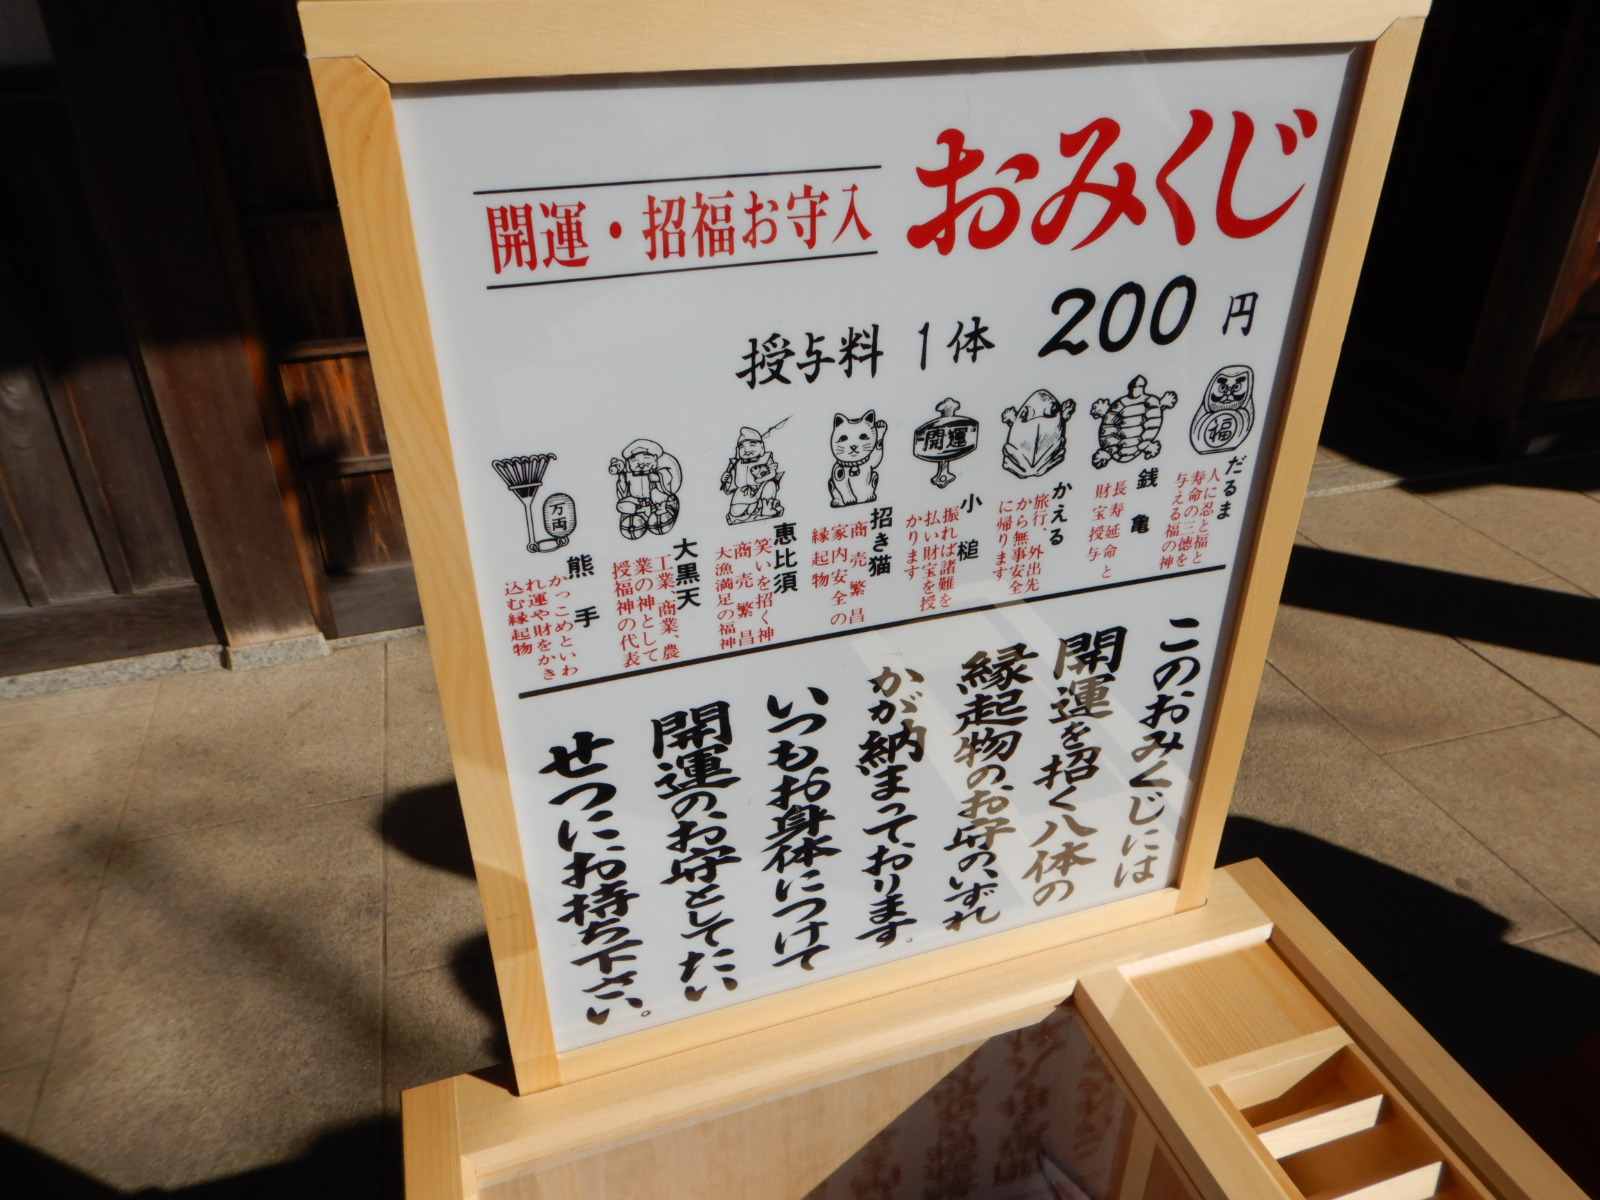 おみくじ
開運・招福お守入
授与料 1体 200円
福
だるま
人に忍と福と
寿命の三徳を
与える福の神
銭亀
長寿延命と
財宝授与
かえる
旅行、外出先
から無事安全
に帰ります
開運
小槌
振れば諸難を
払い財宝を授
かります
招き猫
商売繁昌
家内安全の
縁起物
恵比須
笑いを招く神
商売繁昌
大漁満足の福神
大黒天
工業、商業、農
業の神として
授福神の代表
万両
熊手
かっこめといわ
れ運や財をかき
込む縁起物
このおみくじには
開運を招く八体の
縁起物のお守のいずれ
かが納まっております。
いつもお身体につけて
開運のお守としてたい
せつにお持ち下さい。